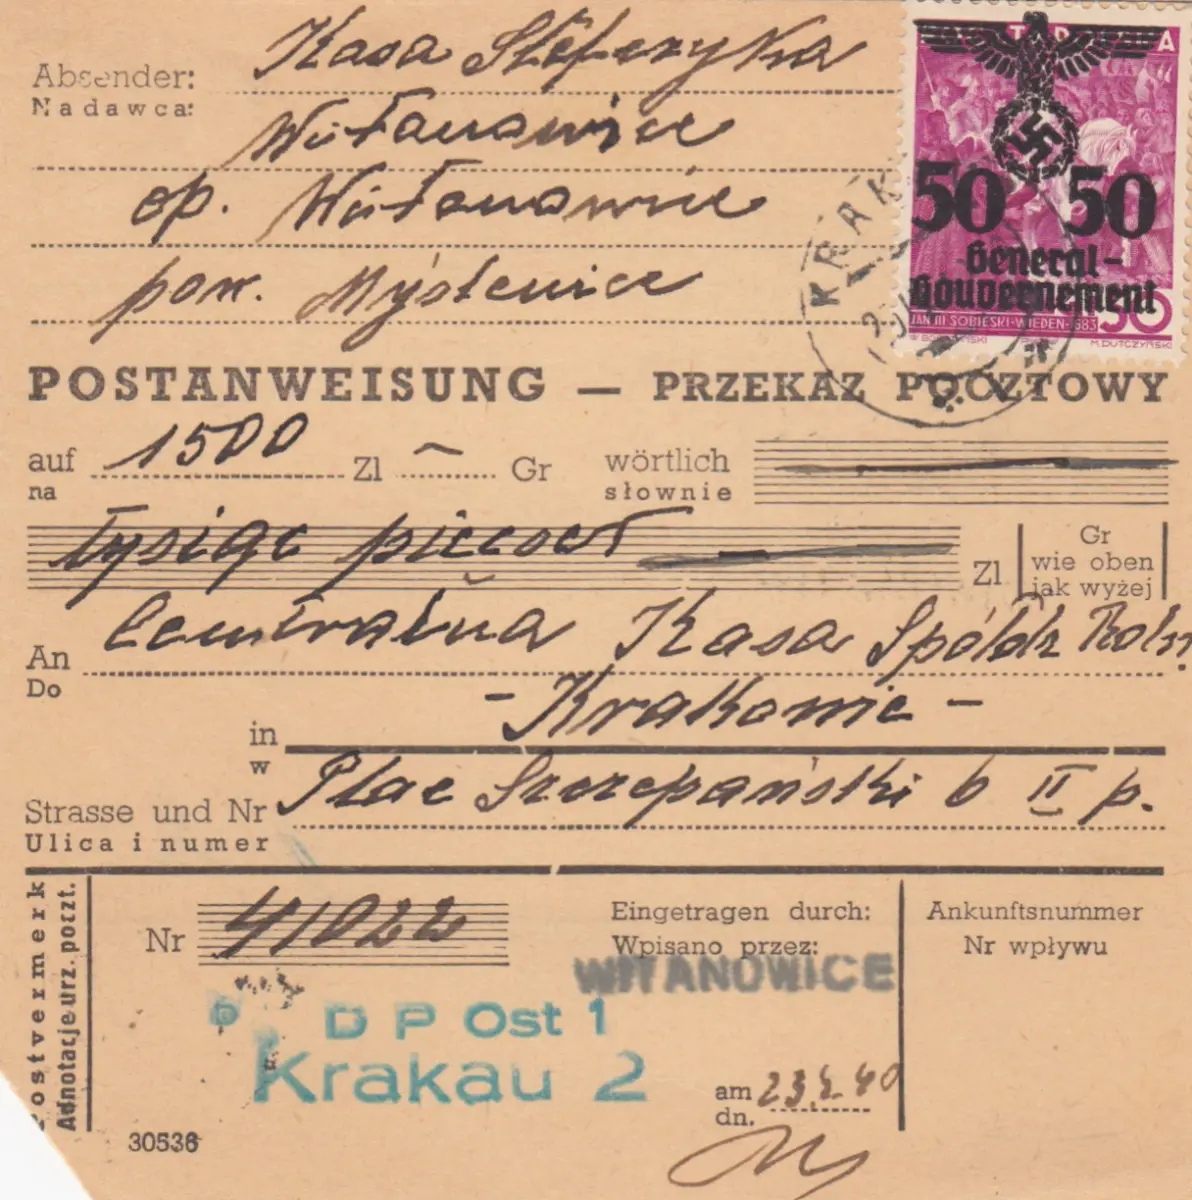 Absender: Kasa Stefczyka
Nadawca:
Witanowice
op. Witanowice
pow. Myślenice
POCZTA POLSKA
50 50
General-
Gouvernement
JAN III SOBIESKI-WIEDEŃ-1683 50
M. DUTCZYŃSKI
KRAK
POSTANWEISUNG — PRZEKAZ POCZTOWY
auf 1500 Zl — Gr wörtlich
na słownie
tysiąc pięćset Zl Gr
wie oben
jak wyżej
An Centralna Kasa Spółdz Roln.
Do
in - Krakowie -
w
Strasse und Nr Plac Szczepański 6 II p.
Ulica i numer
Postvermerk
Adnotacje urz. poczt.
Nr 41022
Eingetragen durch:
Wpisano przez:
WITANOWICE
Ankunftsnummer
Nr wpływu
D P Ost 1
Krakau 2
am 23.
dn.
30536